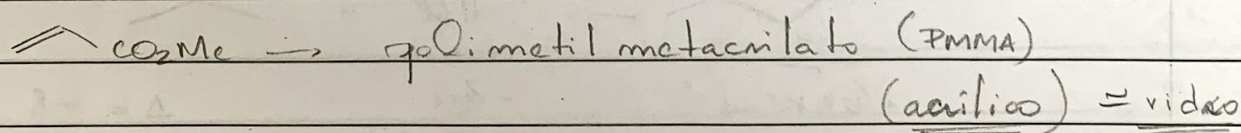 CO₂Me → polimetil metacrilato (PMMA)
(acrílico) = vidro